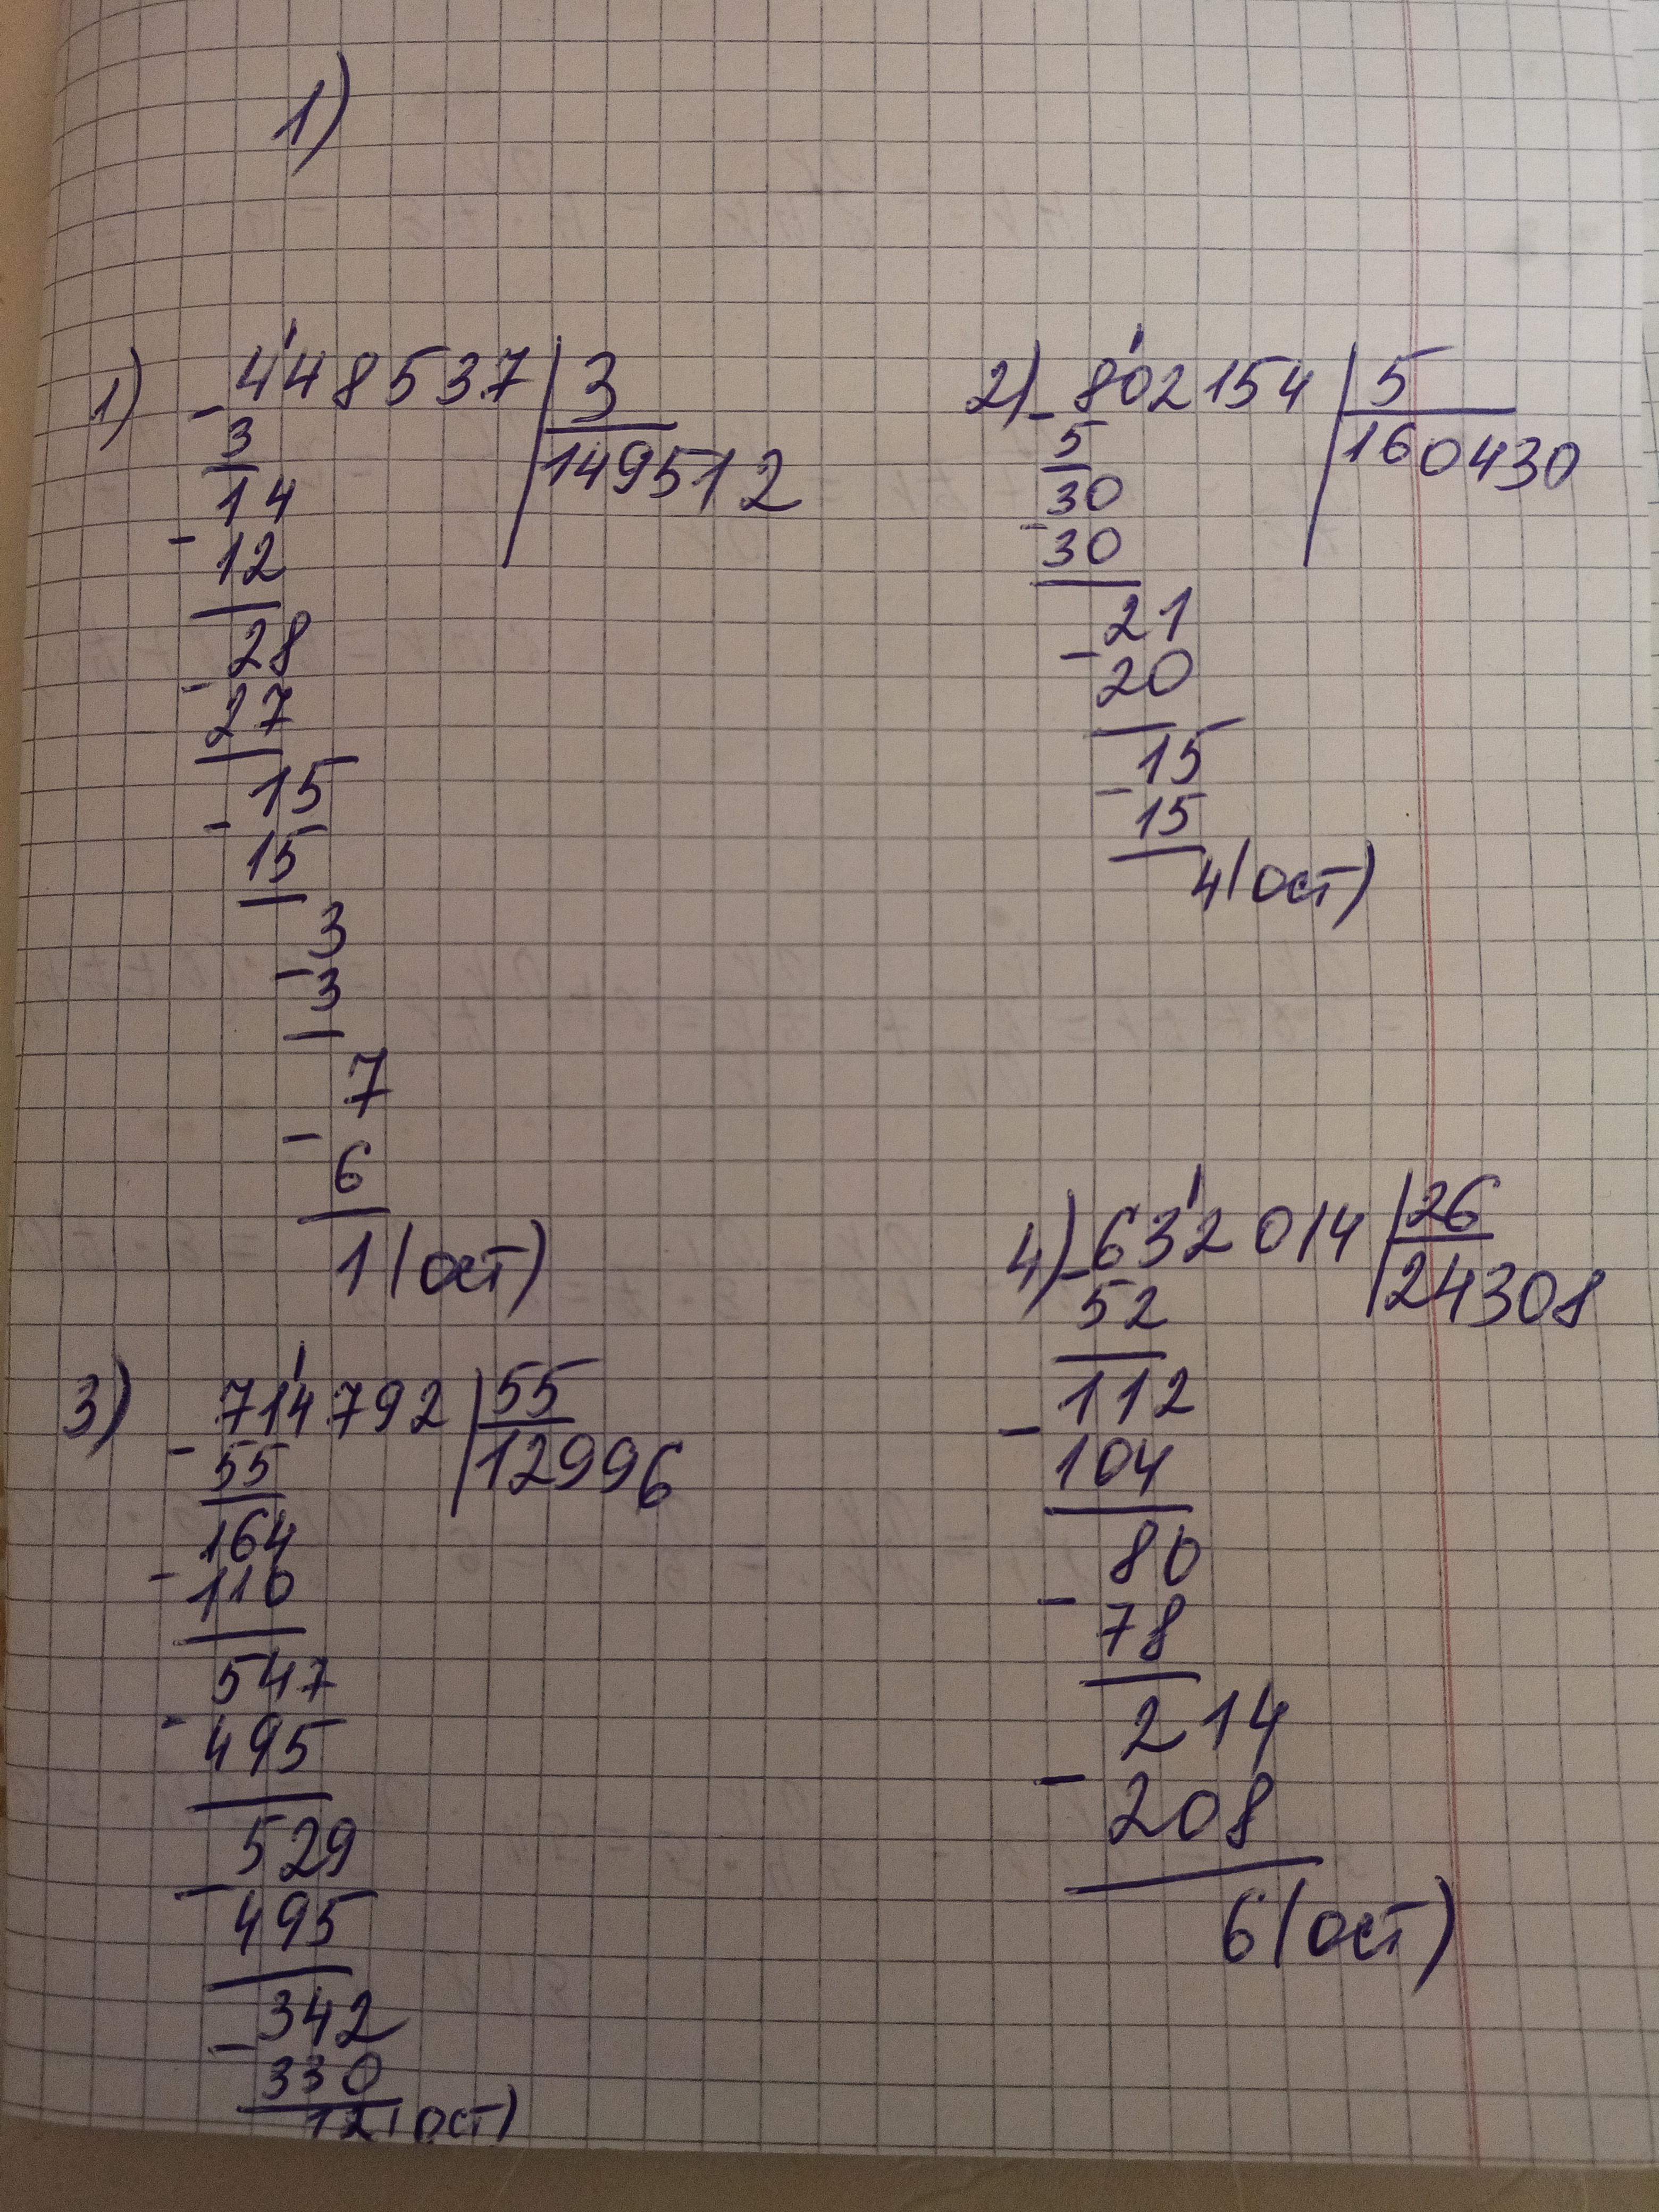 1)
1) 4'48537 | 3
- 3
149512
14
- 12
28
- 27
15
- 15
3
- 3
7
- 6
1 (ост)
2) - 8'02154 | 5
5
160430
30
- 30
21
- 20
15
- 15
4 (ост)
3) 71'4792 | 55
- 55
12996
164
- 110
547
- 495
529
- 495
342
- 330
12 (ост)
4) - 63'2014 | 26
52
24308
112
- 104
80
- 78
214
- 208
6 (ост)